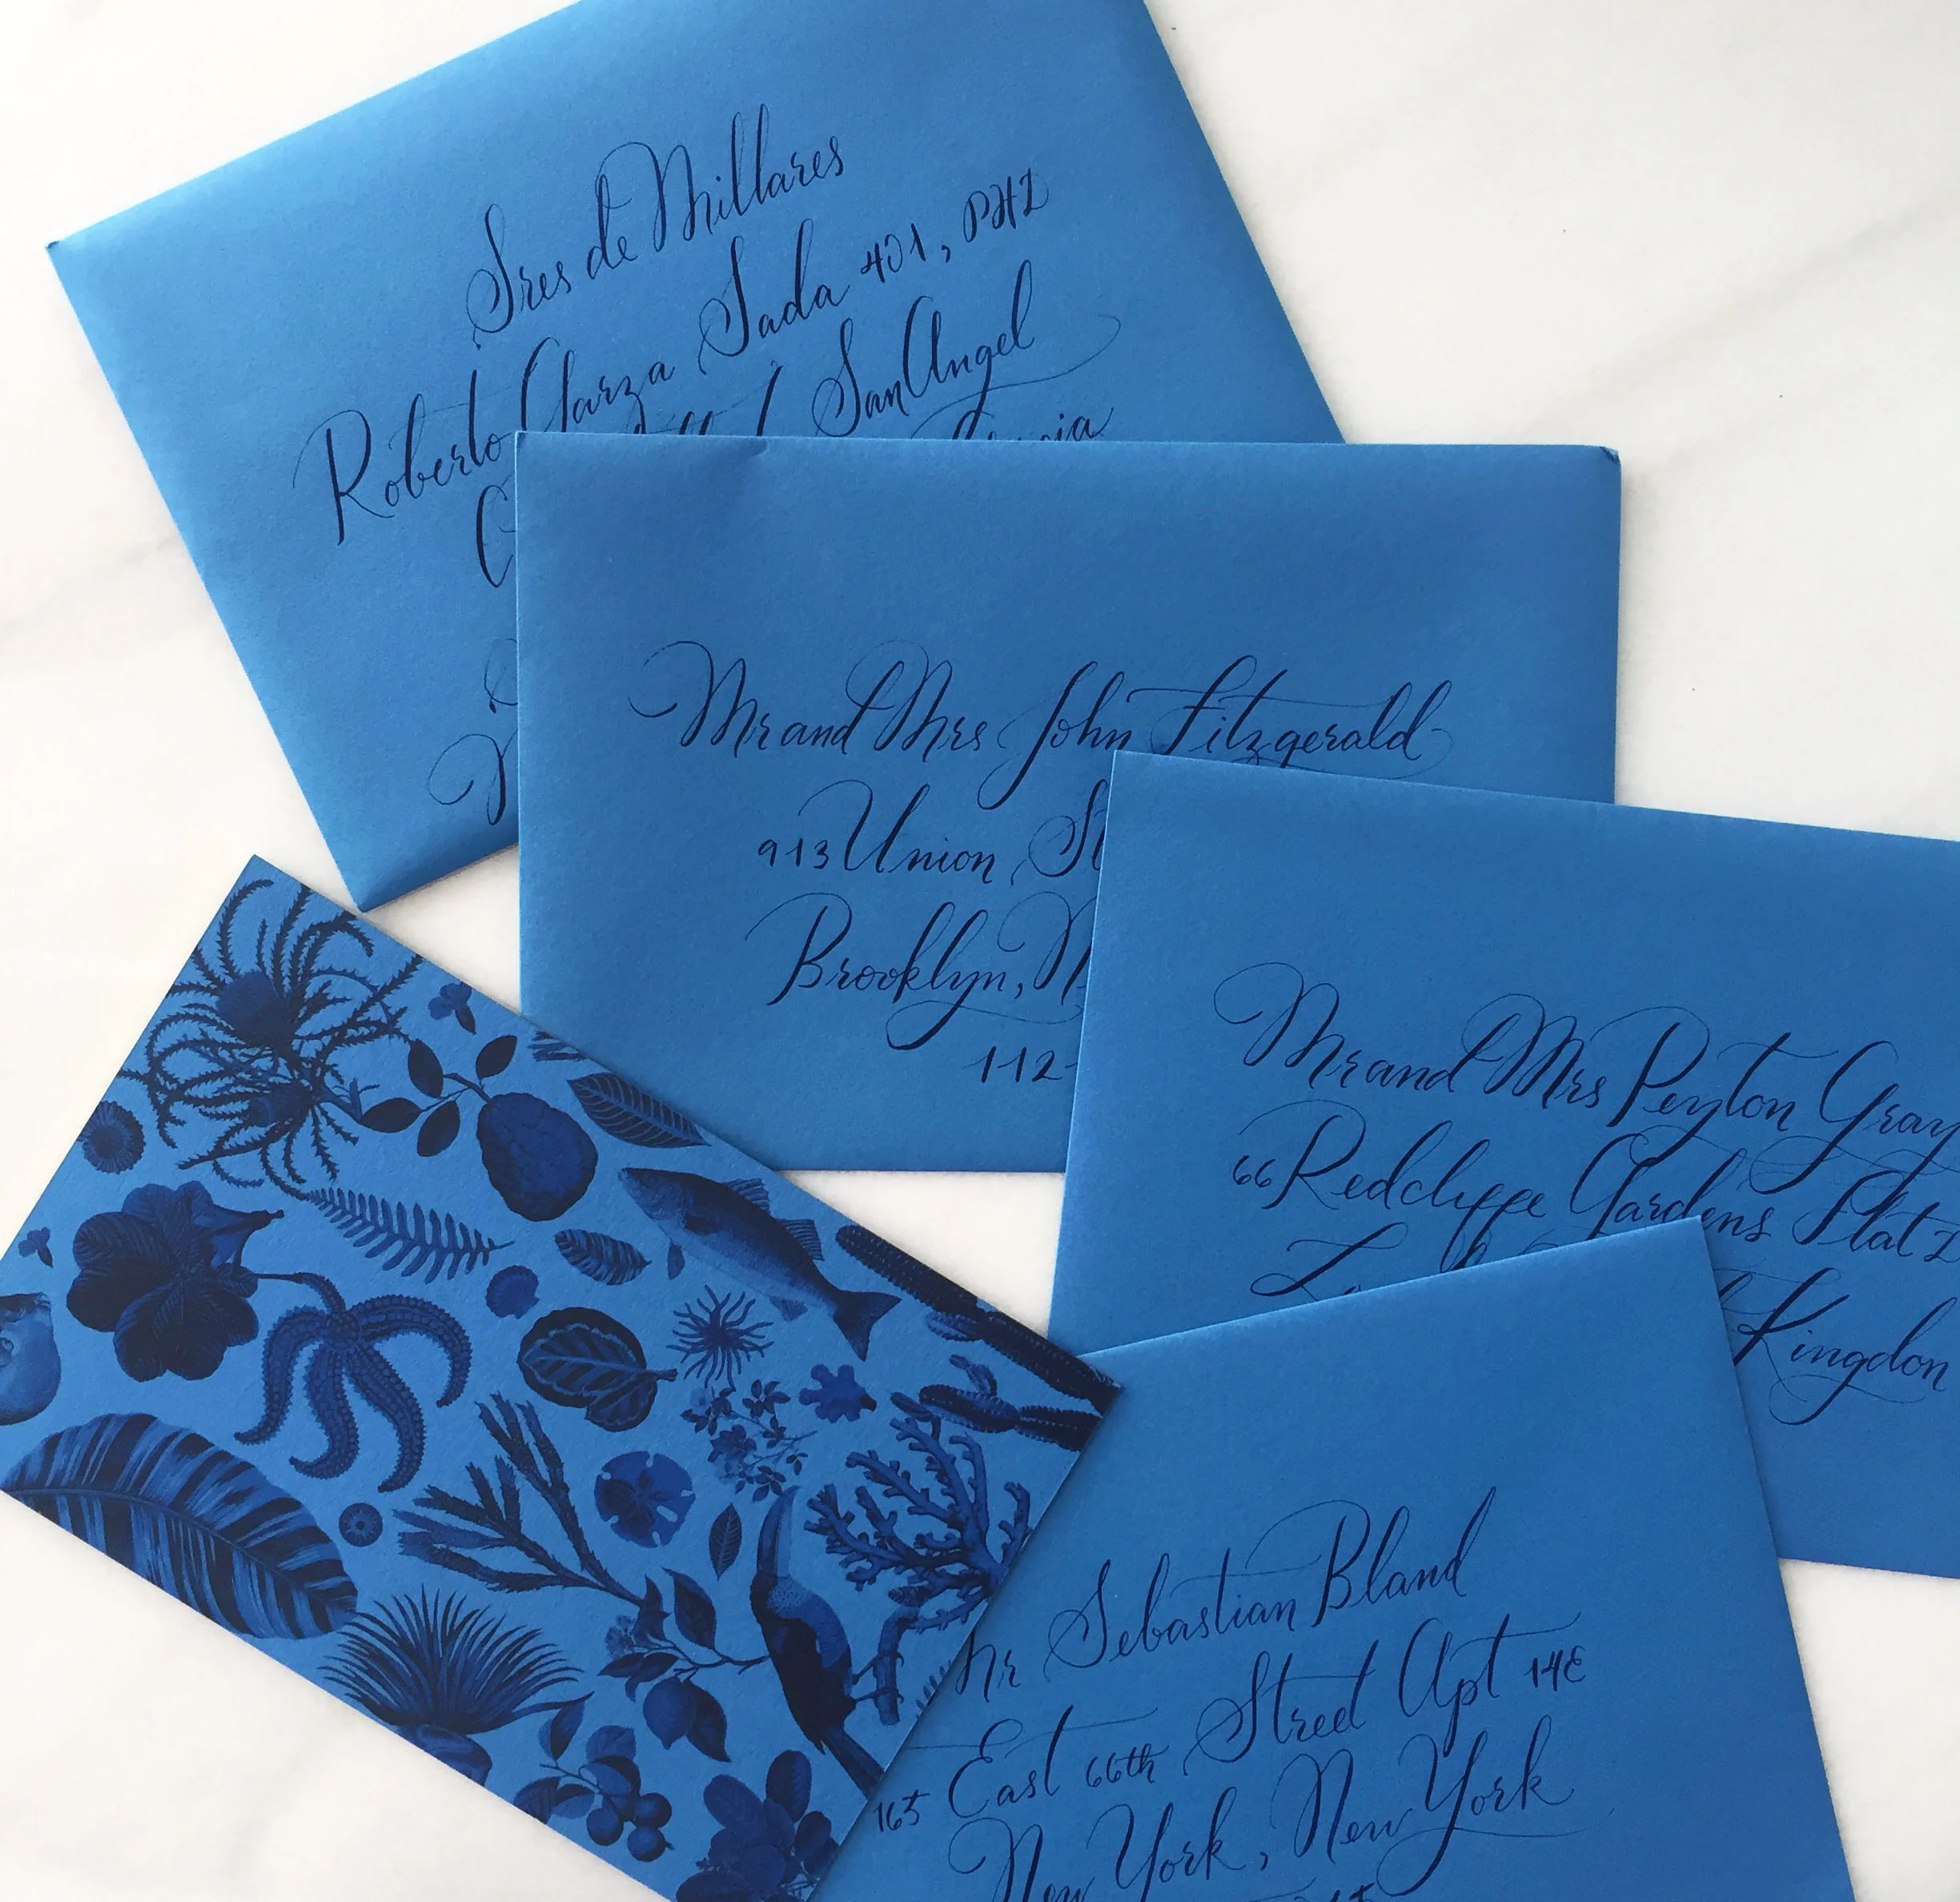 Sres de Millares
Roberto Garza Sada 401, PH2
San Angel
Mr and Mrs John Fitzgerald
913 Union
Brooklyn,
Mr and Mrs Peyton Gray
66 Redclyffe Gardens Flat 2
Kingdon
Mr Sebastian Bland
165 East 66th Street Apt 14E
New York, New York